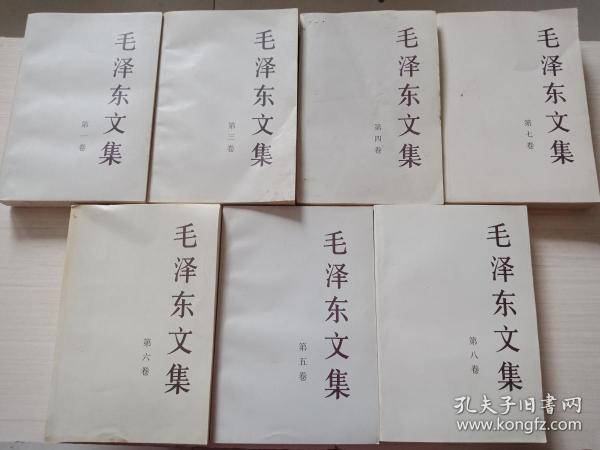 毛泽东文集
第一卷
毛泽东文集
第三卷
毛泽东文集
第四卷
毛泽东文集
第七卷
毛泽东文集
第六卷
毛泽东文集
第五卷
毛泽东文集
第八卷
孔夫子旧书网
www.kongfz.com